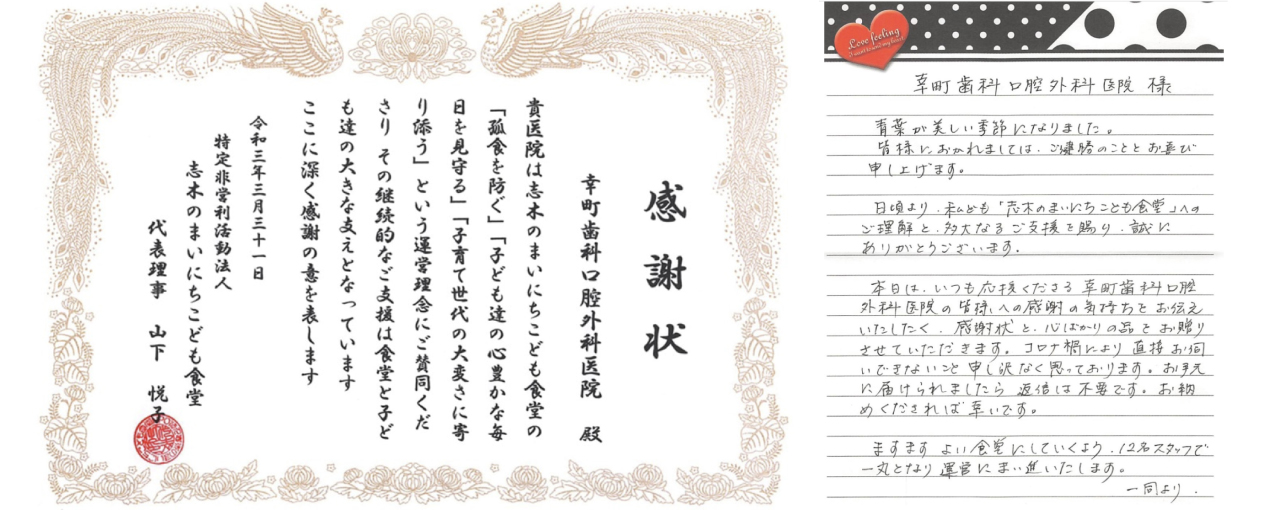 感謝状
幸町歯科口腔外科医院 殿
貴医院は志木のまいにちこども食堂の
「孤食を防ぐ」「子ども達の心豊かな毎
日を見守る」「子育て世代の大変さに寄
り添う」という運営理念にご賛同くだ
さり その継続的なご支援は食堂と子ど
も達の大きな支えとなっています
ここに深く感謝の意を表します
令和三年三月三十一日
特定非営利活動法人
志木のまいにちこども食堂
代表理事 山下 悦子
Love feeling
幸町歯科口腔外科医院 様
青葉が美しい季節になりました。
皆様におかれましては、ご健勝のこととお喜び
申し上げます。
日頃より、私ども「志木のまいにちこども食堂」への
ご理解と、多大なるご支援を賜り、誠に
ありがとうございます。
本日は、いつも応援くださる 幸町歯科口腔
外科医院の皆様への感謝の気持ちをお伝え
いたしたく、感謝状と、心ばかりの品をお贈り
させていただきます。コロナ禍により 直接お伺
いできないこと 申し訳なく思っております。お手元
に届けられましたら 返信は不要です。お納
めくだされば幸いです。
ますます よい食堂にしていくよう、12名スタッフで
一丸となり 運営にまい進いたします。
一同より.